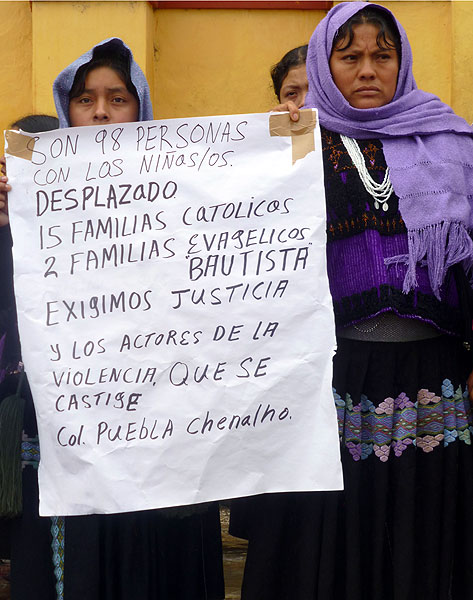 SON 98 PERSONAS
CON LOS NIÑAS/OS.
DESPLAZADO.
15 FAMILIAS CATOLICOS
2 FAMILIAS EVAGELICOS
"BAUTISTA"
EXIGIMOS JUSTICIA
Y LOS ACTORES DE LA
VIOLENCIA, QUE SE
CASTIGE
Col. PUEBLA Chenalho.